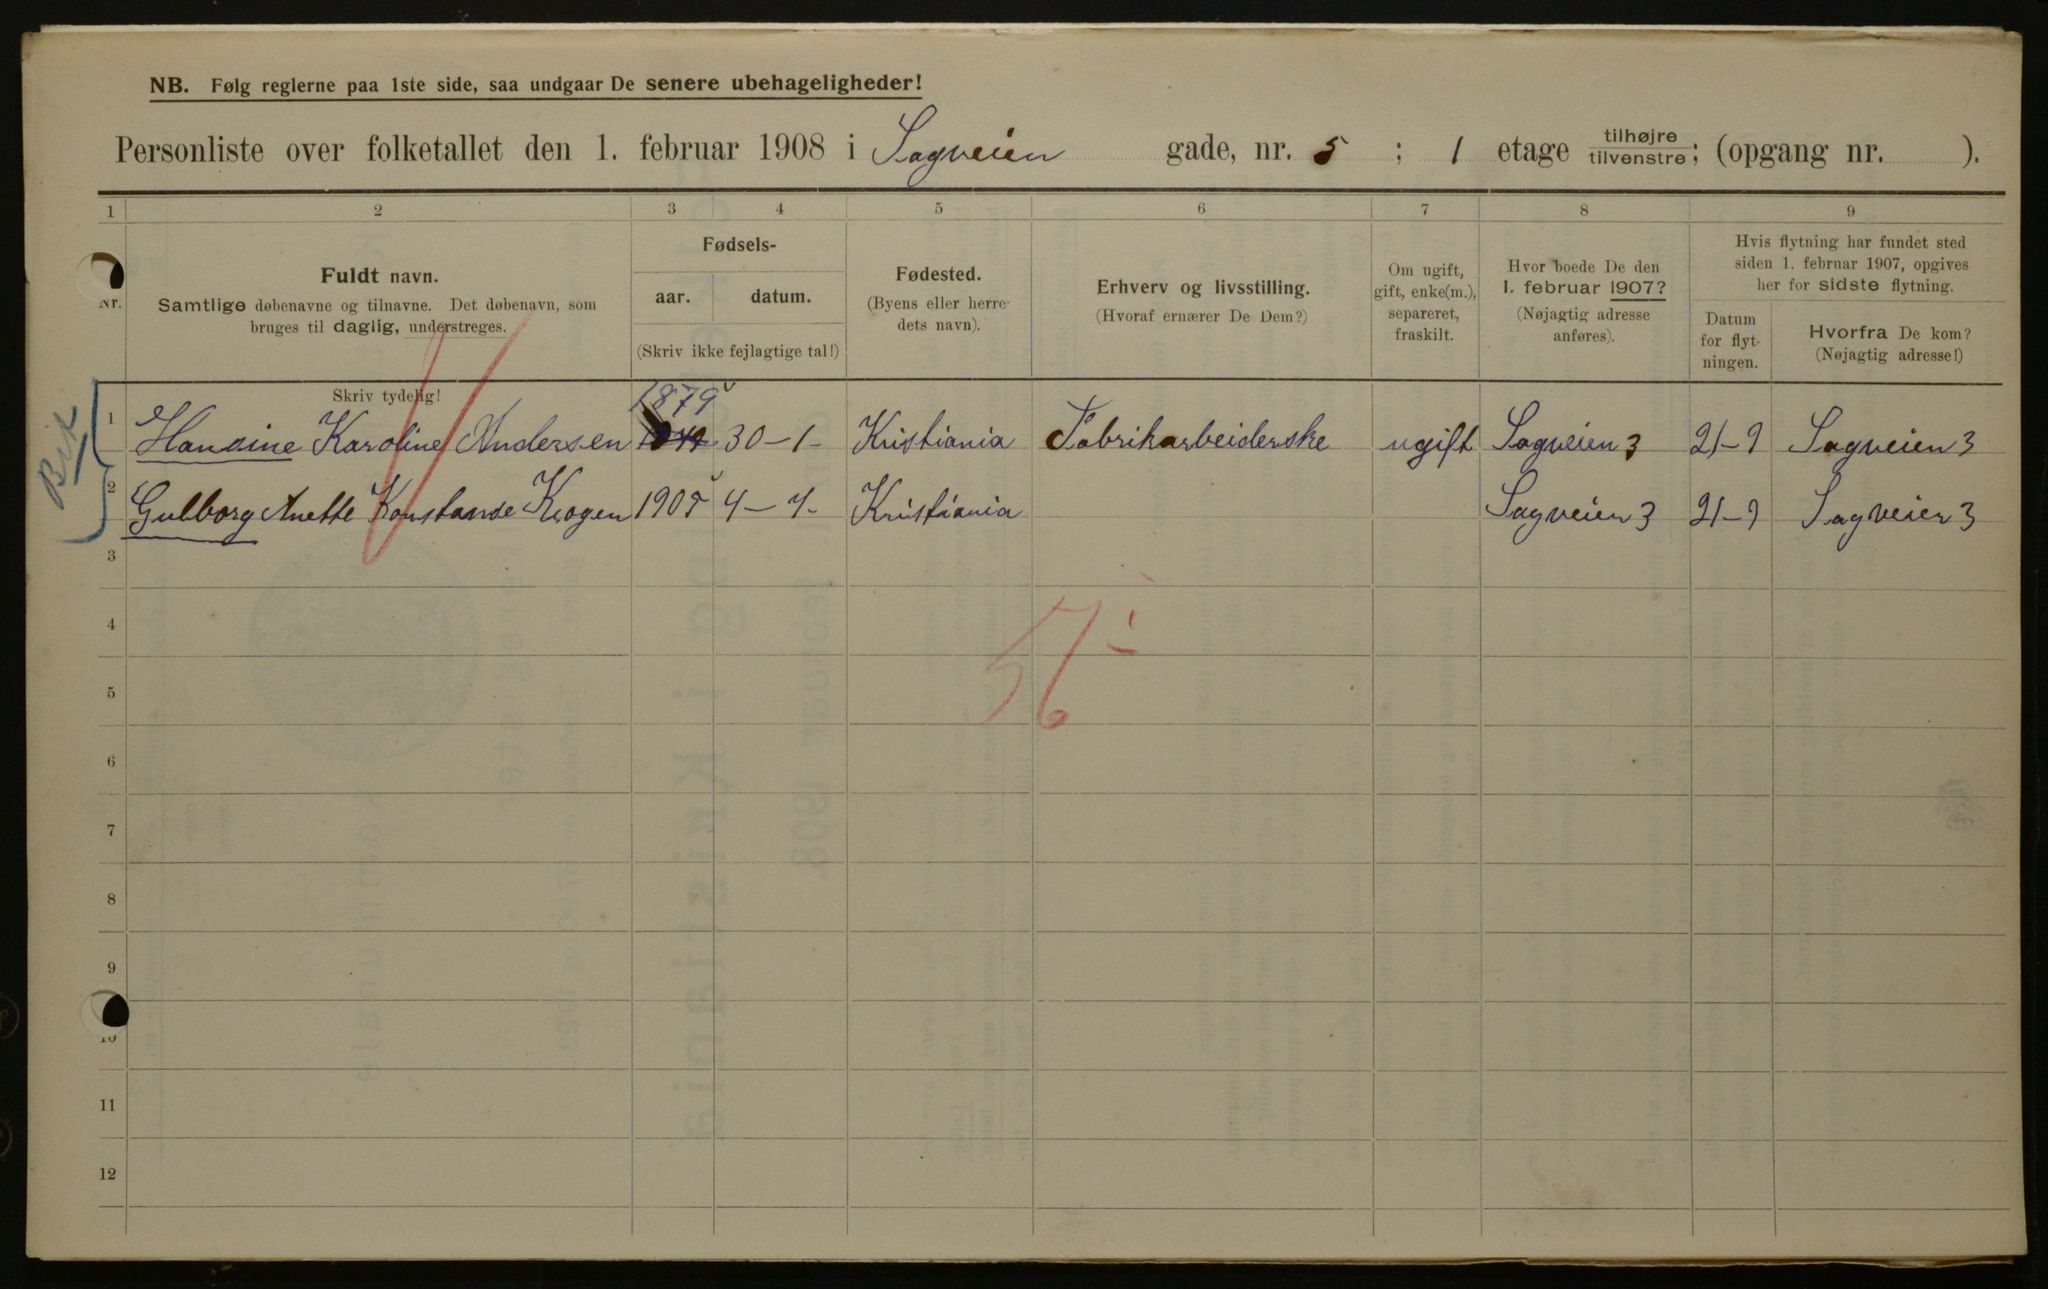 NB. Følg reglerne paa 1ste side, saa undgaar De senere ubehageligheder!
Personliste over folketallet den 1. februar 1908 i Sagveien gade, nr. 5 ; 1 etage tilhøjre tilvenstre; (opgang nr. ).
1 2 3 4 5 6 7 8 9
Nr. Fuldt navn. Samtlige døbenavne og tilnavne. Det døbenavn, som bruges til daglig, understreges.
Fødsels- aar. datum. (Skriv ikke fejlagtige tal!)
Fødested. (Byens eller herredets navn).
Erhverv og livsstilling. (Hvoraf ernærer De Dem?)
Om ugift, gift, enke(m.), separeret, fraskilt.
Hvor boede De den 1. februar 1907? (Nøjagtig adresse anføres).
Hvis flytning har fundet sted siden 1. februar 1907, opgives her for sidste flytning.
Datum for flytningen.
Hvorfra De kom? (Nøjagtig adresse!)
Skriv tydelig!
1879
1 Hansine Karoline Andersen 30-1- Kristiania Fabrikarbeiderske ugift Sagveien 3 21-9 Sagveien 3
2 Gulborg Anette Konstanse Krogen 1905 4-7- Kristiania Sagveien 3 21-9 Sagveien 3
3
4
5
6
7
8
9
10
11
12